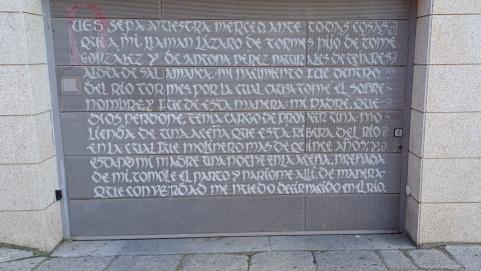 UES SEPA VUESTRA MERCED ANTE TODAS COSAS
QUE A MI LLAMAN LÁZARO DE TORMES HIJO DE TOME
GONZALEZ Y DE ANTONA PÉREZ NATURALES DE TEJARES
ALDEA DE SALAMANCA. MI NACIMIENTO FUE DENTRO
DEL RÍO TORMES POR LA CUAL CAUSA TOME EL SOBRE
NOMBRE, Y FUE DE ESTA MANERA: MI PADRE, QUE
DIOS PERDONE, TENIA CARGO DE PROVEER UNA MO
LIENDA DE UNA ACEÑA QUE ESTÁ RIBERA DEL RÍO
EN LA CUAL FUE MOLINERO MAS DE QUINCE AÑOS, Y
ESTANDO MI MADRE UNA NOCHE EN LA ACEÑA, PREÑADA
DE MI, TOMOLE EL PARTO Y PARIOME ALLI. DE MANERA
QUE CON VERDAD ME PUEDO DECIR NACIDO EN EL RÍO.